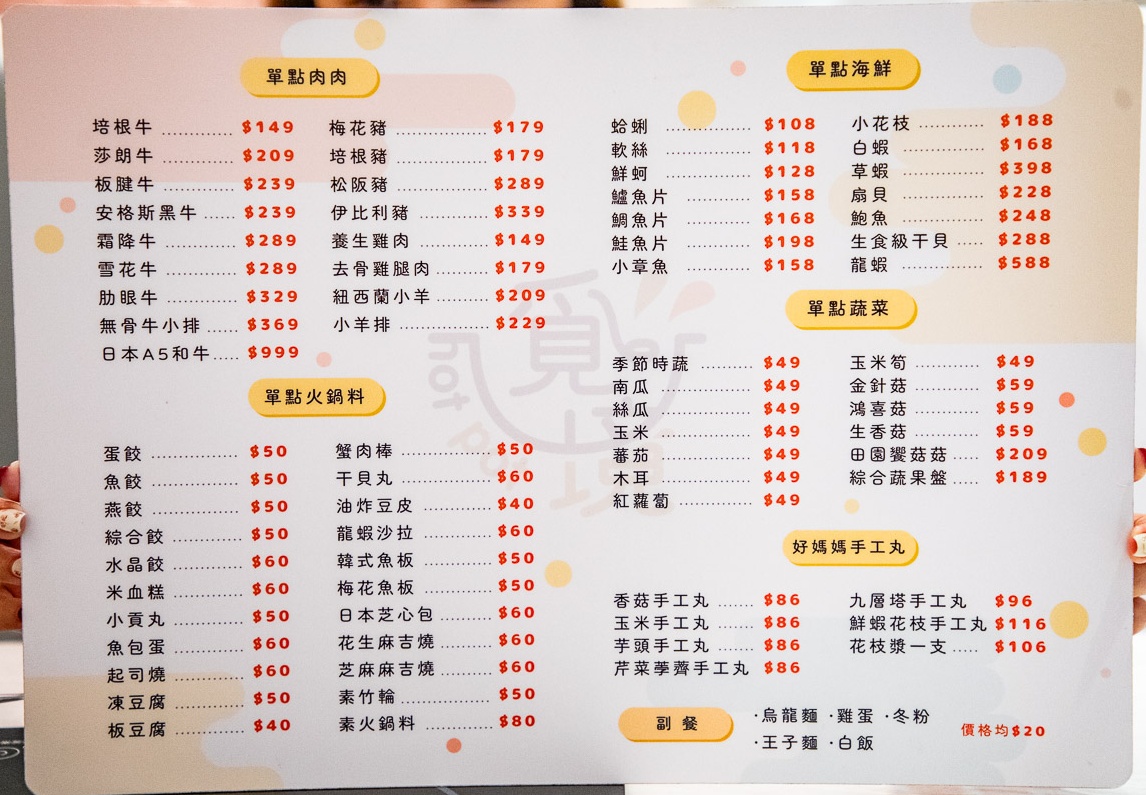 單點肉肉
培根牛 ............ $149
莎朗牛 ............ $209
板腱牛 ............ $239
安格斯黑牛 ...... $239
霜降牛 ............ $289
雪花牛 ............ $289
肋眼牛 ............ $329
無骨牛小排 ...... $369
日本A5和牛..... $999
梅花豬 ............ $179
培根豬 ............ $179
松阪豬 ............ $289
伊比利豬 ............ $339
養生雞肉 ............ $149
去骨雞腿肉 ......... $179
紐西蘭小羊 ......... $209
小羊排 ............ $229
單點火鍋料
蛋餃 ............ $50
魚餃 ............ $50
燕餃 ............ $50
綜合餃 ............ $50
水晶餃 ............ $60
米血糕 ............ $60
小貢丸 ............ $50
魚包蛋 ............ $60
起司燒 ............ $60
凍豆腐 ............ $50
板豆腐 ............ $40
蟹肉棒 ............ $50
干貝丸 ............ $60
油炸豆皮 ............ $40
龍蝦沙拉 ............ $60
韓式魚板 ............ $50
梅花魚板 ............ $50
日本芝心包 ......... $60
花生麻吉燒 ......... $60
芝麻麻吉燒 ......... $60
素竹輪 ............ $50
素火鍋料 ............ $80
單點海鮮
蛤蜊 ............ $108
軟絲 ............ $118
鮮蚵 ............ $128
鱸魚片 ......... $158
鯛魚片 ......... $168
鮭魚片 ......... $198
小章魚 ......... $158
小花枝 ............ $188
白蝦 ............ $168
草蝦 ............ $398
扇貝 ............ $228
鮑魚 ............ $248
生食級干貝 ..... $288
龍蝦 ............ $588
單點蔬菜
季節時蔬 ......... $49
南瓜 ............ $49
絲瓜 ............ $49
玉米 ............ $49
蕃茄 ............ $49
木耳 ............ $49
紅蘿蔔 ............ $49
玉米筍 ............ $49
金針菇 ............ $59
鴻喜菇 ............ $59
生香菇 ............ $59
田園饗菇菇 ..... $209
綜合蔬果盤 ..... $189
好媽媽手工丸
香菇手工丸 ....... $86
玉米手工丸 ....... $86
芋頭手工丸 ....... $86
芹菜荸薺手工丸 $86
九層塔手工丸 $96
鮮蝦花枝手工丸 $116
花枝漿一支 ..... $106
副餐
·烏龍麵 ·雞蛋 ·冬粉
·王子麵 ·白飯
價格均$20
覓
hot pot